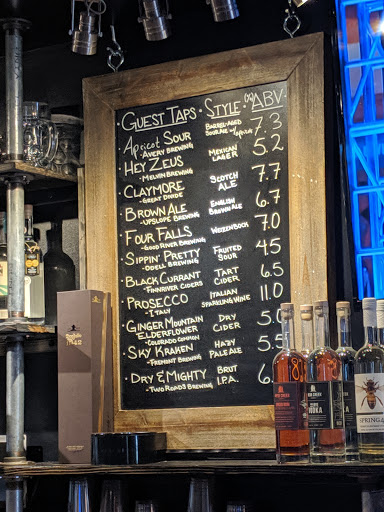 Guest Taps · Style · % ABV ·
Apricot Sour Barrel-aged Sour Ale 7.3
-Avery Brewing
Hey Zeus Mexican Lager 5.2
-Melvin Brewing
Claymore Scotch Ale 7.7
-Great Divide
Brown Ale English Brown Ale 6.7
-Upslope Brewing
Four Falls Weizenbock 7.0
-Good River Brewing
Sippin' Pretty Fruited Sour 4.5
-Odell Brewing
Black Currant Tart Cider 6.5
-Fenceline Ciders
Prosecco Italian Sparkling Wine 11.0
-Italy
Ginger Mountain Elderflower Dry Cider 5.
-Colorado Common
Sky Kraken Hazy Pale Ale 5.5
-Fremont Brewing
Dry & Mighty Brut I.P.A. 6.
-Two Roads Brewing